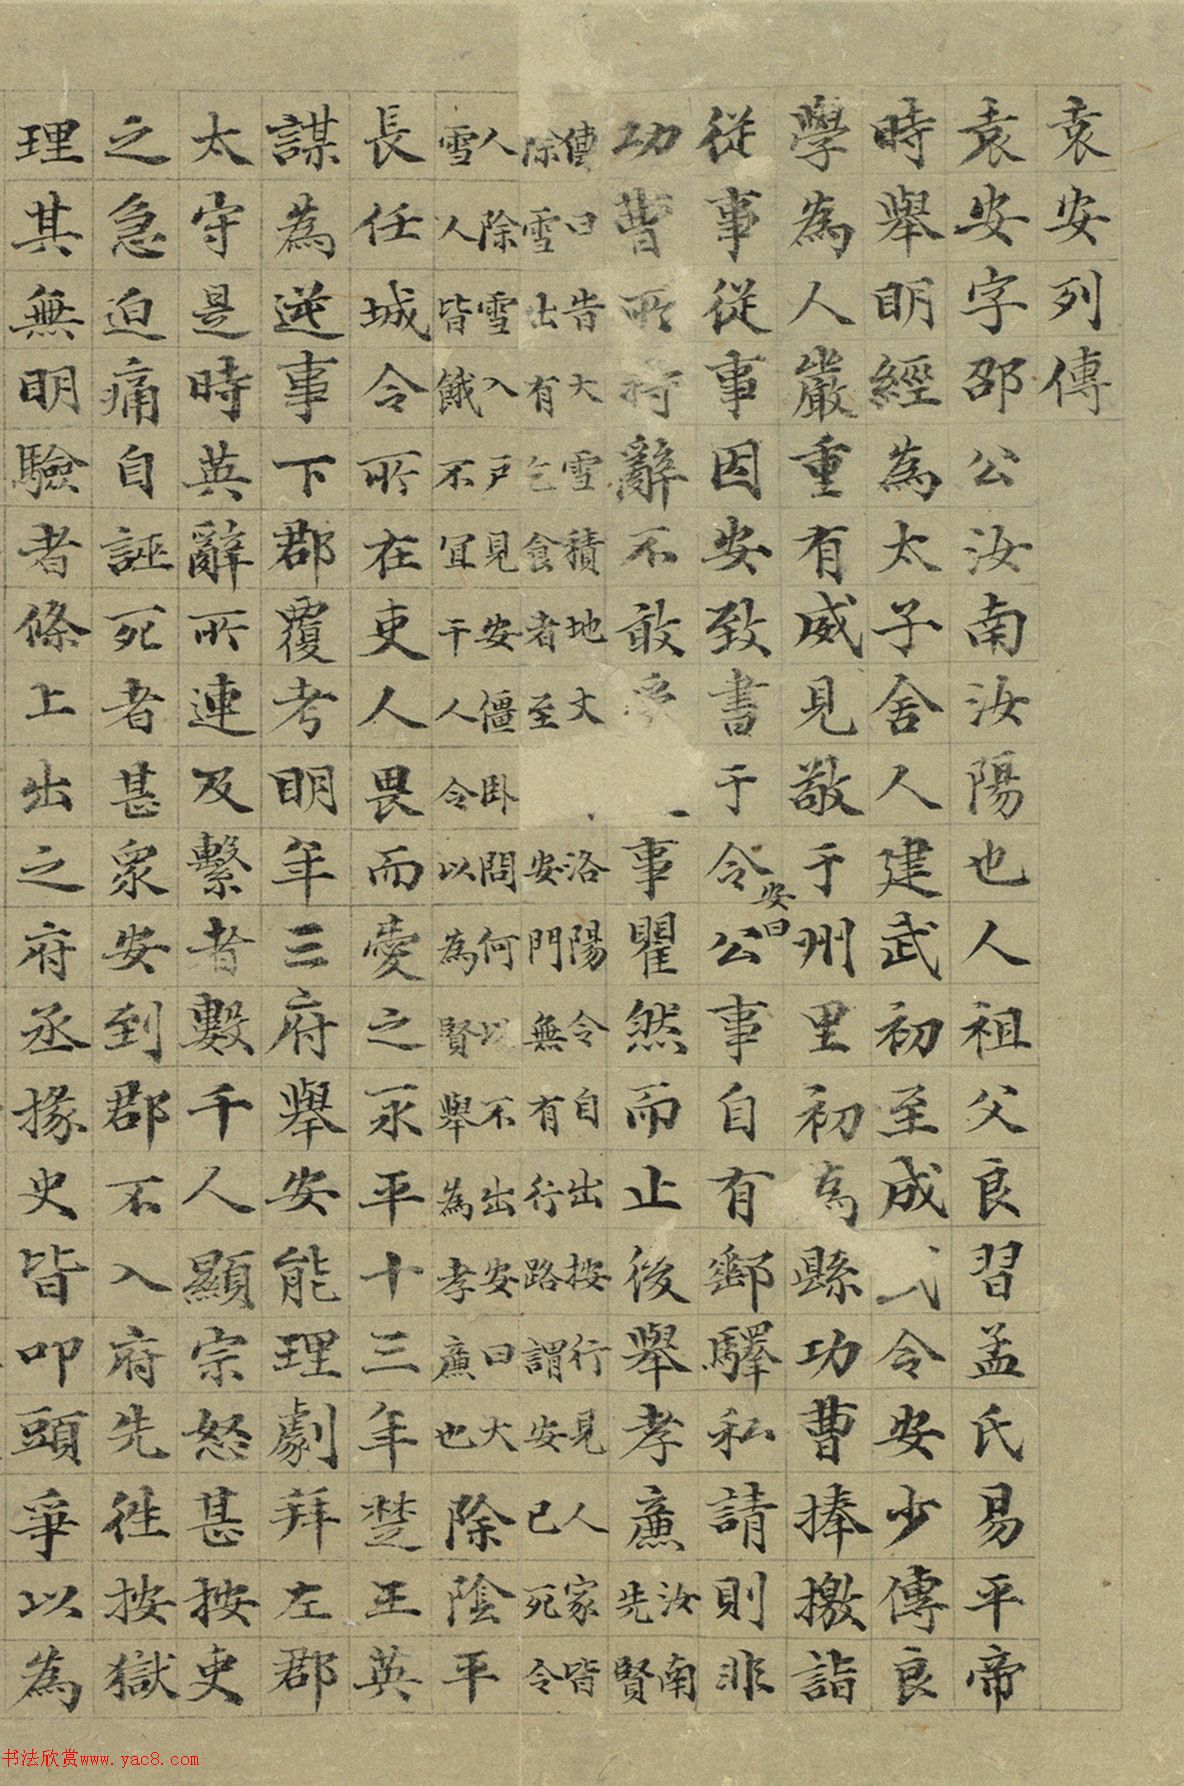 袁安列傳
袁安字邵公汝南汝陽也人祖父良習孟氏易平帝
時舉明經為太子舍人建武初至成令安少傳良
學為人嚴重有威見敬于州里初為縣功曹捧檄詣
從事從事因安致書于令安曰公事自有郵驛私請則非
功曹所持辭不敢受事瞿然而止後舉孝廉汝南先賢
傳曰告大雪積地丈洛陽令自出按行見人家皆
除雪出有乞食者至安門無有行路謂安已死令
人除雪入戶見安僵臥問何以不出安曰大
雪人皆餓不宜干人令以為賢舉為孝廉也除陰平
長任城令所在吏人畏而愛之永平十三年楚王英
謀為逆事下郡覆考明年三府舉安能理劇拜左郡
太守是時英辭所連及繫者數千人顯宗怒甚按吏
之急迫痛自誣死者甚眾安到郡不入府先往按獄
理其無明驗者條上出之府丞掾史皆叩頭爭以為
书法欣赏www.yac8.com